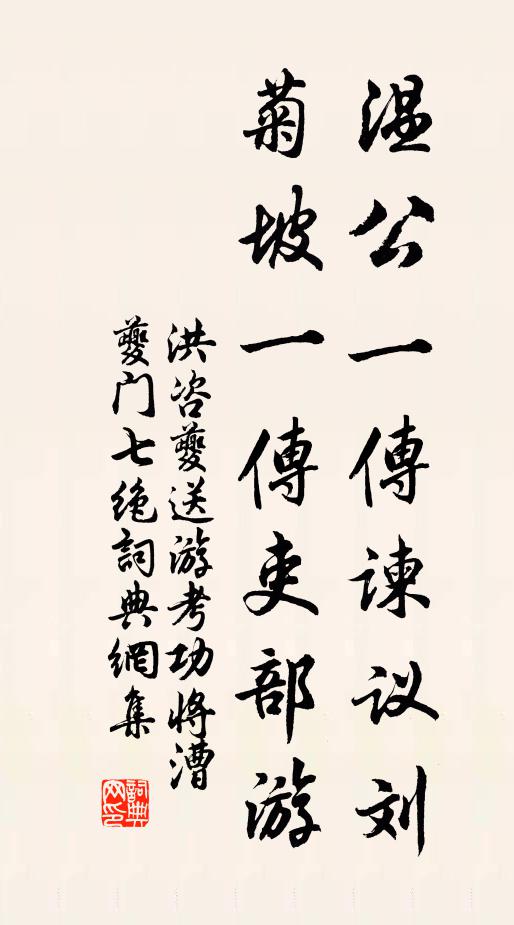 温公一傳谏议刘
菊坡一傳吏部游
洪咨夔送游考功将漕
夔门七绝詞典網集
詞典网印